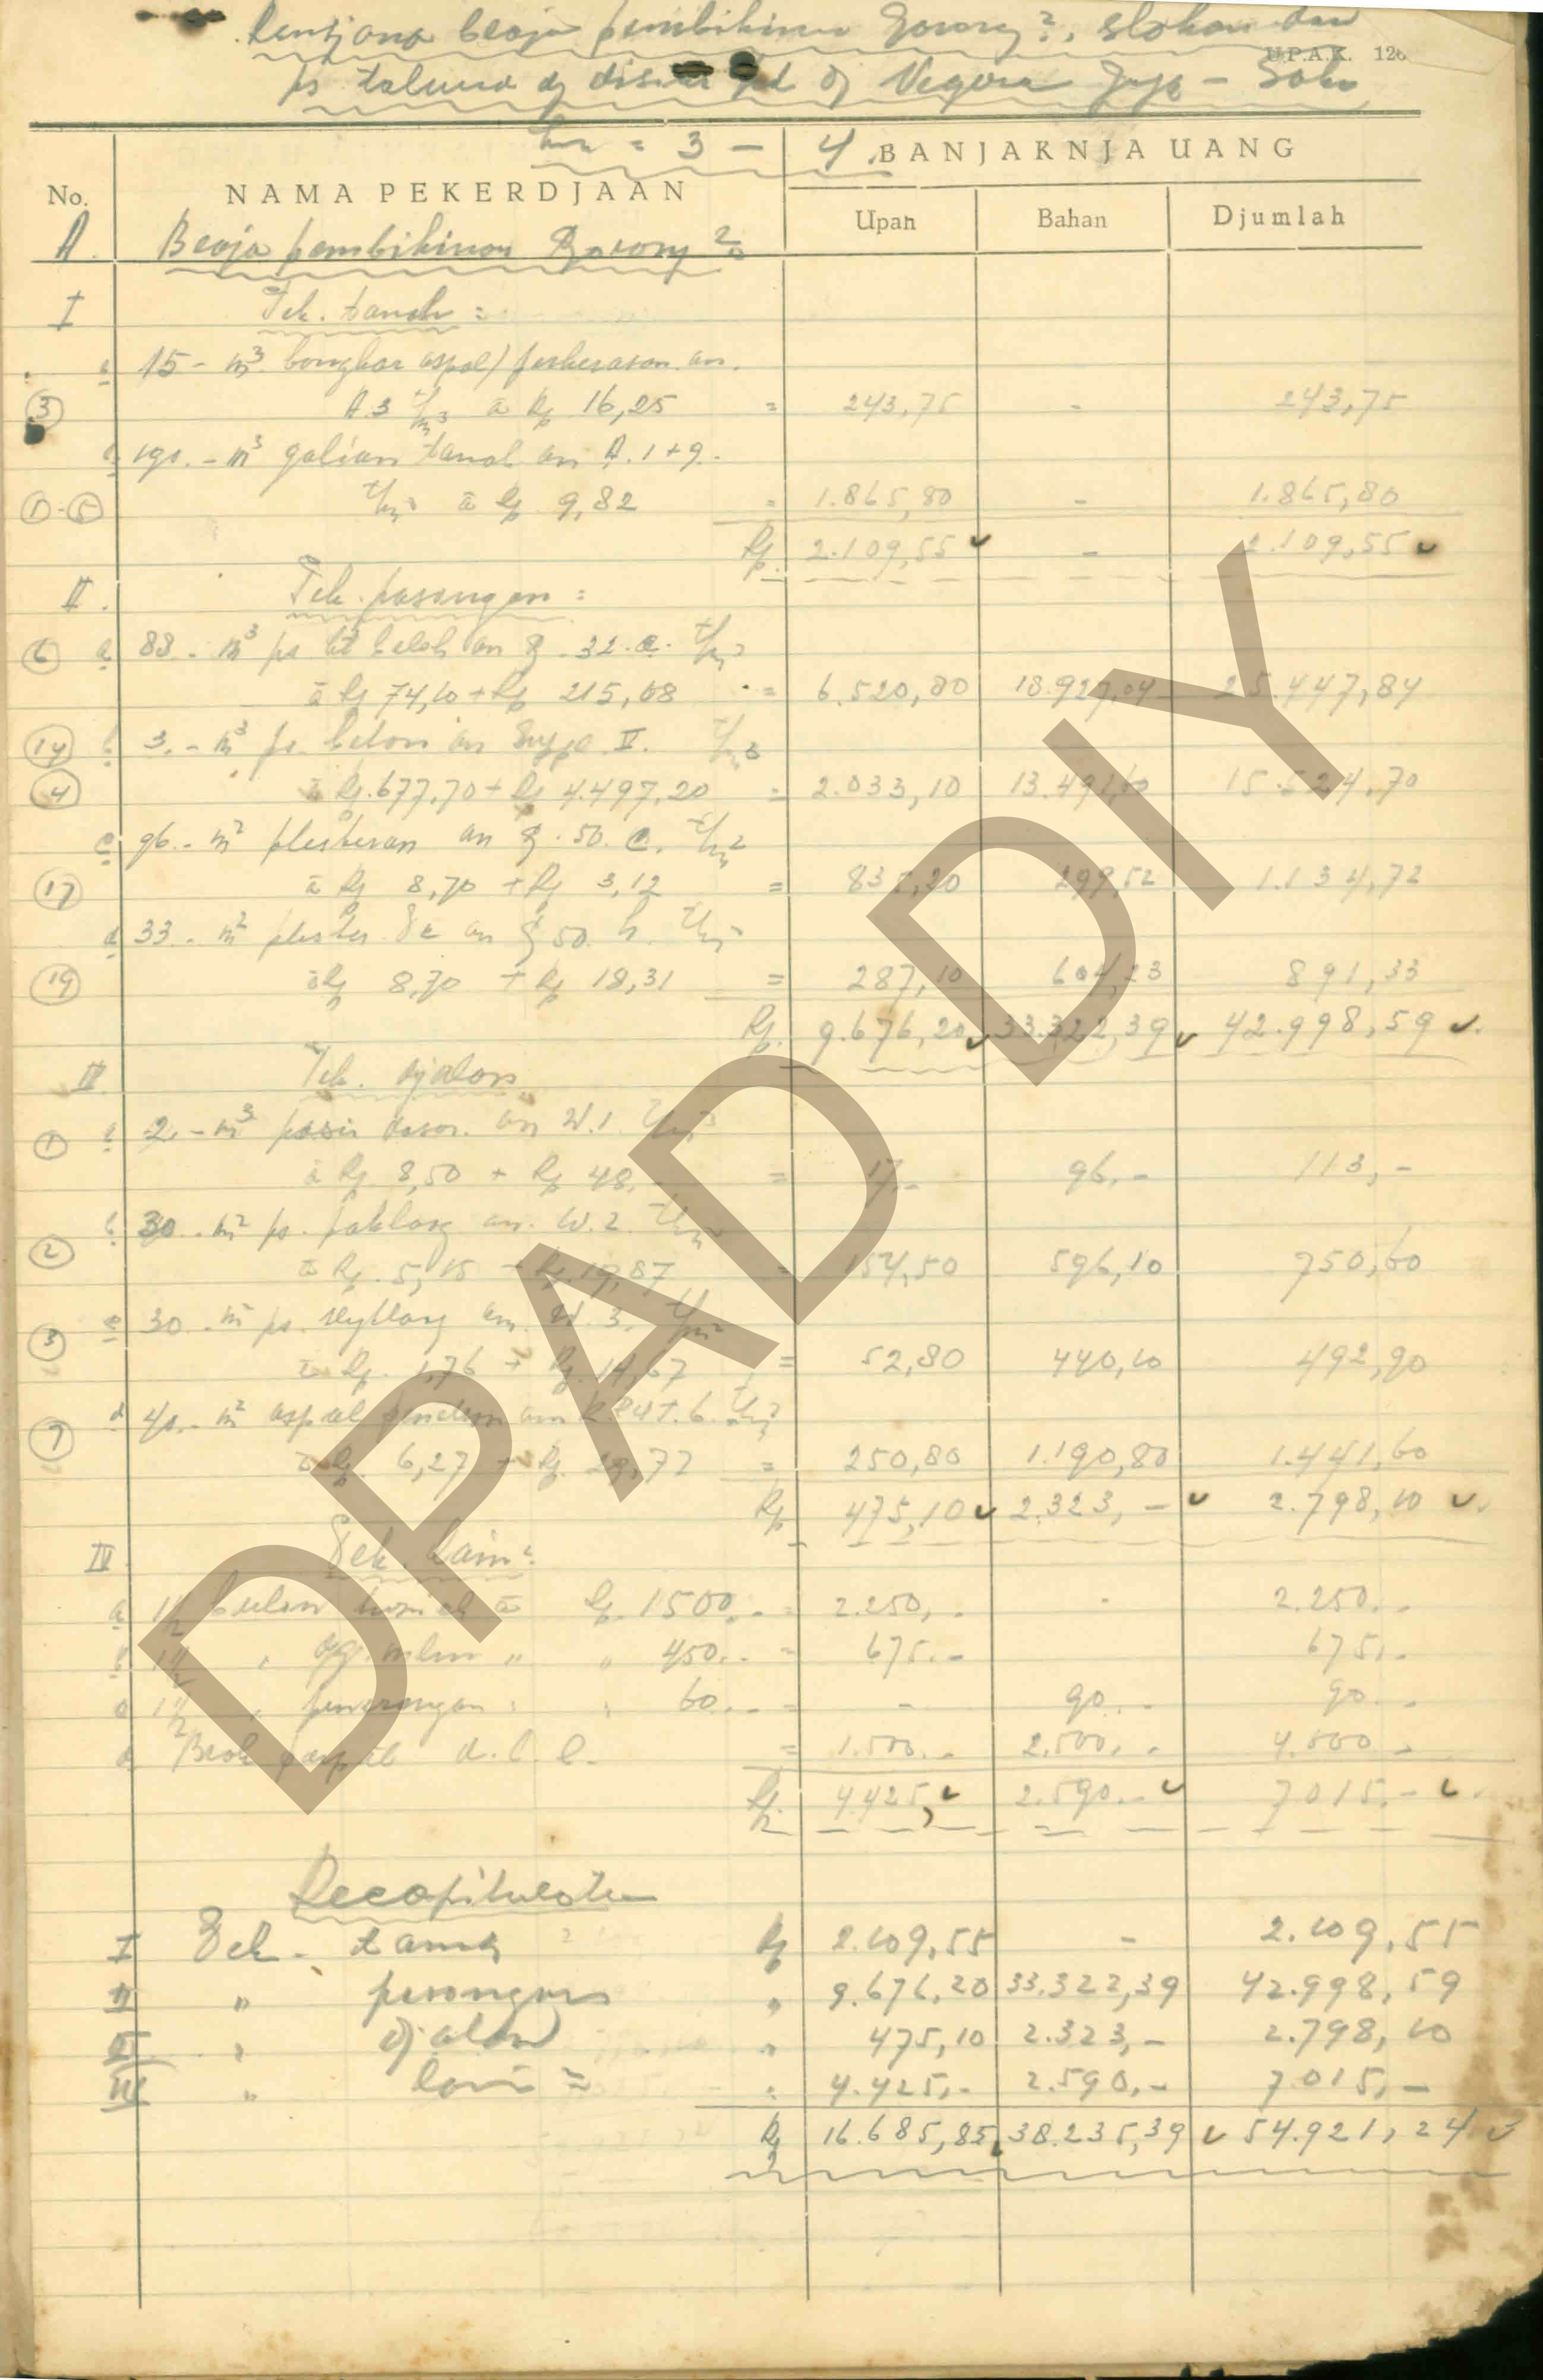 Rentjana beaja pembikinan Gorong2, slokan dan
U.P.A.K. 126
ps talud dj Negara Jogja - Solo
km = 3 - 4.
BANJAKNJA UANG
No. NAMA PEKERDJAAN Upah Bahan Djumlah
A. Beaja pembikinan Gorong2
I Pek. tanah :
a 15 - m3 bongkar aspal/perkerasan an.
3 A.3 t/m3 à Rp 16,25 = 243,75 - 243,75
b 190.- m3 galian tanah an A.1+9.
1-5 t/m3 à Rp 9,82 = 1.865,80 - 1.865,80
Rp. 2.109,55 - 2.109,55
II. Pek. pasangan :
6 a 88.- m3 ps bt belah an G.32.a. t/m3
à Rp 74,10 + Rp 215,08 = 6.520,80 18.927,04 25.447,84
14 b 3.- m3 ps. beton an II. t/m3
4 à Rp.677,70 + Rp 4.497,20 = 2.033,10 13.491,60 15.524,70
c 96.- m2 plesteran an G.50.c. t/m2
17 à Rp 8,70 + Rp 3,12 = 835,20 299,52 1.134,72
d 33.- m2 plester an G 50 h. t/m2
19 à Rp 8,70 + Rp 18,31 = 287,10 604,23 891,33
Rp. 9.676,20 33.322,39 42.998,59
III Pek. djalan
1 a 2.- m3 pasir dasar an W.1. t/m3
à Rp 8,50 + Rp 48. = 17.- 96.- 113,-
2 b 30.- m2 ps. paklag an. W.2. t/m2
à Rp. 5,15 + Rp. 19,87 = 154,50 596,10 750,60
3 c 30.- m2 ps. slytlag an. W.3. t/m2
à Rp. 1,76 + Rp. 14,67 = 52,80 440,10 492,90
7 d 40.- m2 aspal an t/m2
à Rp. 6,27 + Rp. 29,77 = 250,80 1.190,80 1.441,60
Rp 475,10 2.323,- 2.798,10
IV Pek. Lain2
a 1 1/2 bulan à Rp. 1500.- = 2.250,- - 2.250.-
b 1 1/2 " " " 450.- = 675.- 675.-
c 1 1/2 " penerangan " " 60.- = - 90.- 90.-
d d.l.l. = 1.500.- 2.500.- 4.000.-
Rp. 4.425,- 2.590.- 7.015.-
Recapitulatie
I Pek. tanah Rp 2.109,55 - 2.109,55
II " pasangan " 9.676,20 33.322,39 42.998,59
III " djalan " 475,10 2.323,- 2.798,10
IV " lain2 " 4.425,- 2.590,- 7.015,-
Rp 16.685,85 38.235,39 54.921,24
DPAD DIY